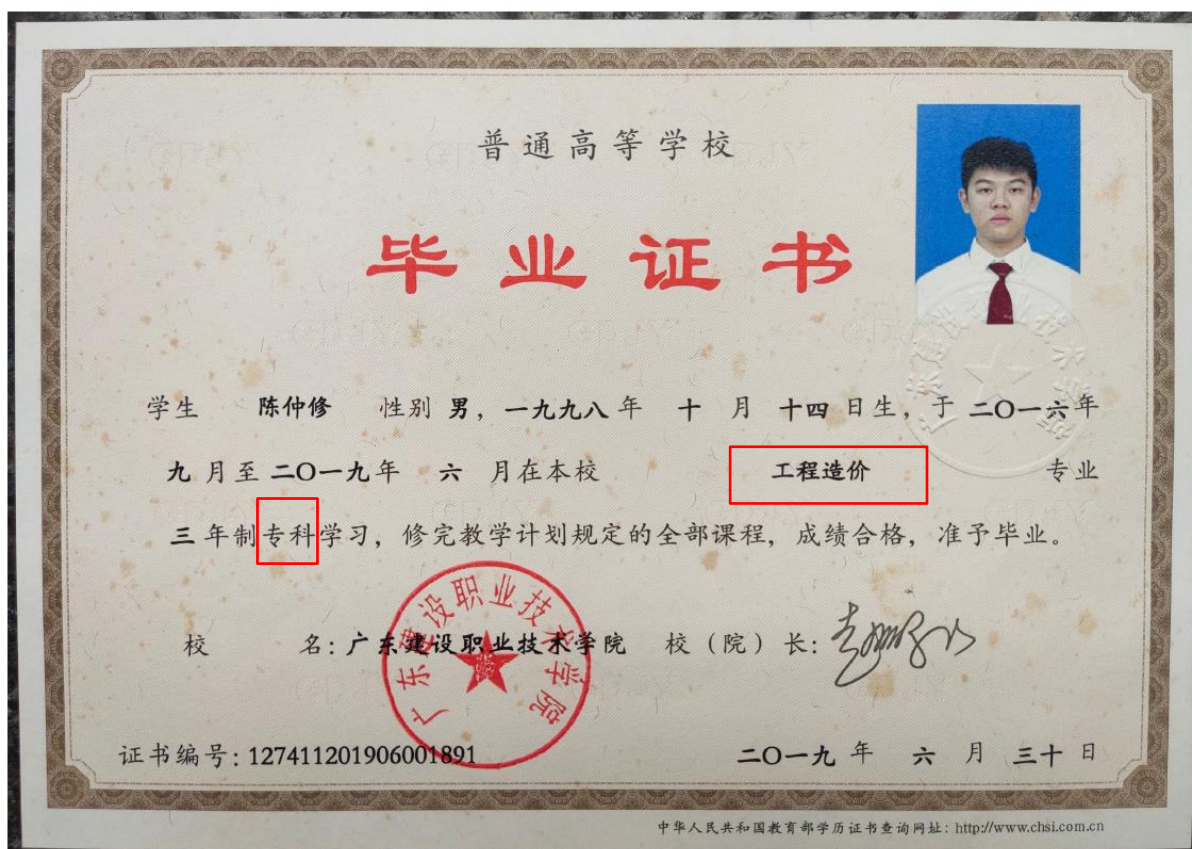 普通高等学校
毕业证书
学生 陈仲修 性别 男，一九九八年 十 月 十四 日生，于 二〇一六年
九 月至 二〇一九年 六 月在本校 工程造价 专业
三 年制专科学习，修完教学计划规定的全部课程，成绩合格，准予毕业。
广东建设职业技术学院
校 名：广东建设职业技术学院 校（院）长：
证书编号：127411201906001891 二〇一九 年 六 月 三十 日
中华人民共和国教育部学历证书查询网址：http://www.chsi.com.cn